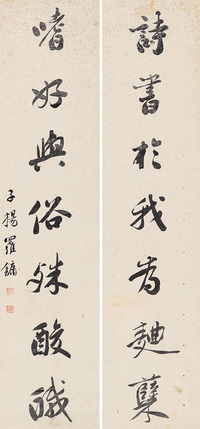 詩書於我為麴糵
嗜好與俗殊酸鹹
子揚羅鏞